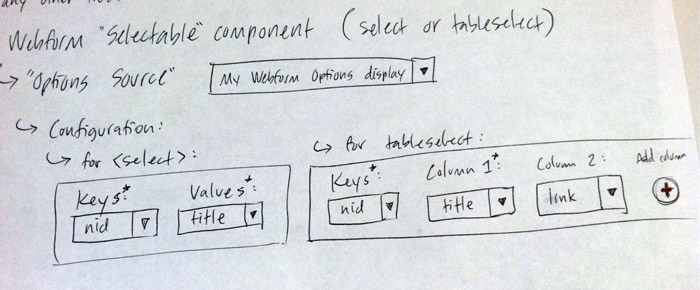 any other
Webform "Selectable" component (select or tableselect)
→ "Options Source" My Webform Options display
↳ Configuration:
↳ for <select>:
Keys*: Values*:
nid title
↳ for tableselect:
Keys*: Column 1*: Column 2: Add column
nid title link +